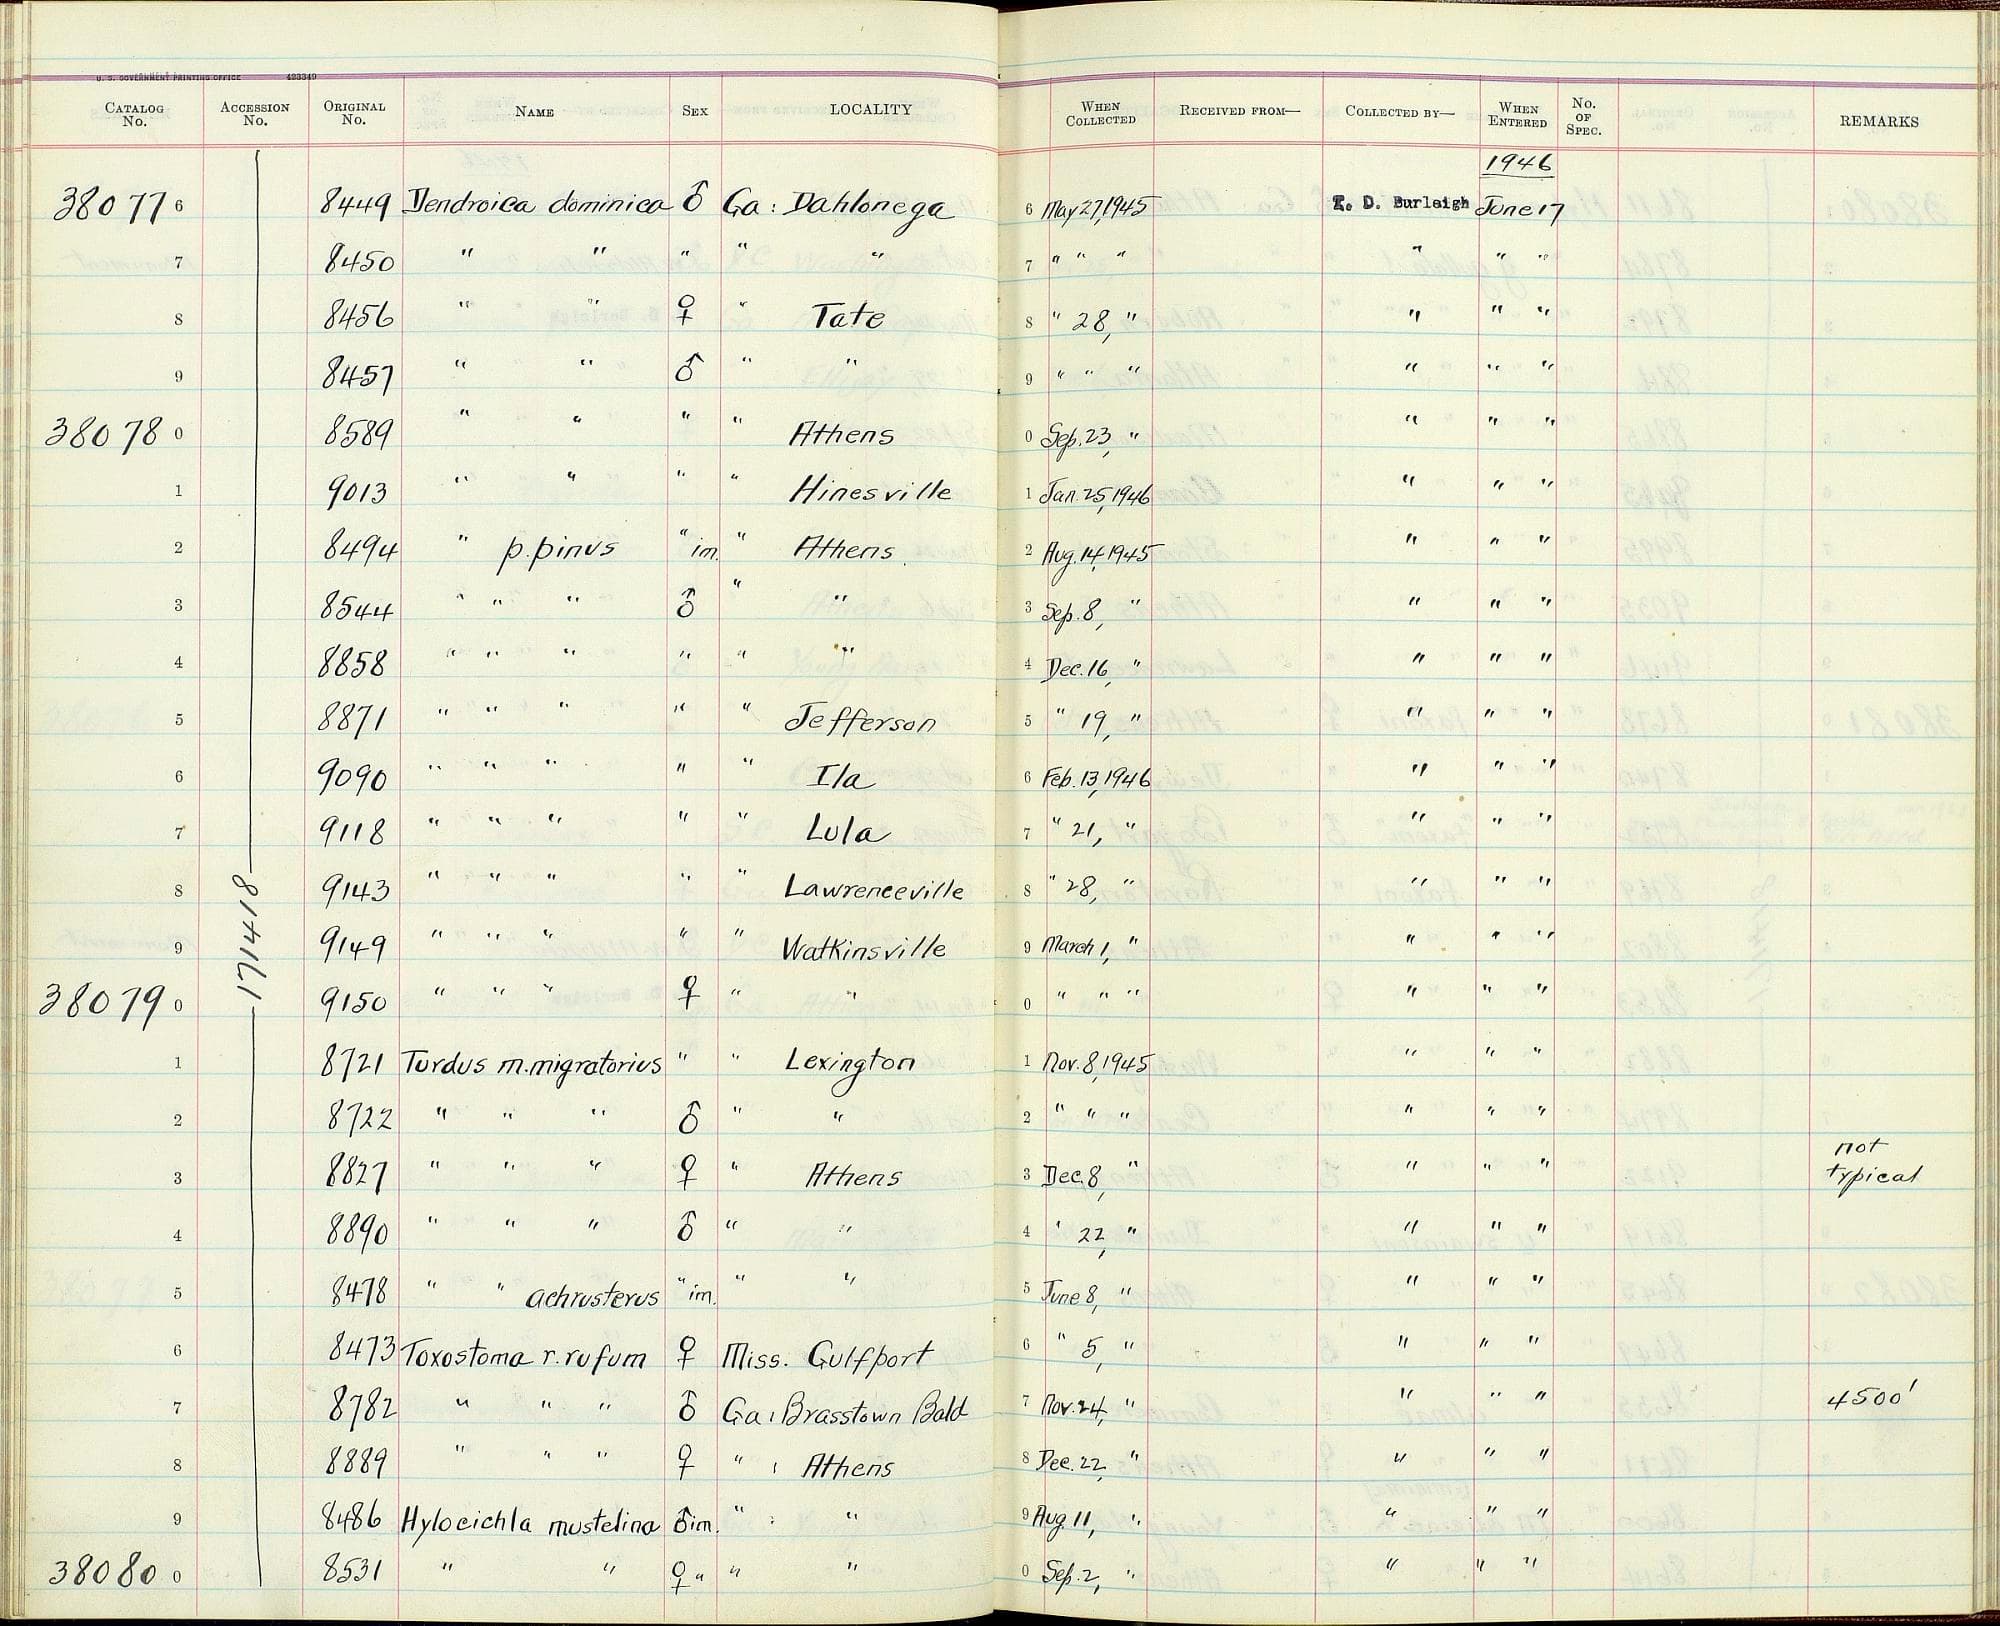 U. S. GOVERNMENT PRINTING OFFICE 423349
CATALOG No. ACCESSION No. ORIGINAL No. NAME SEX LOCALITY WHEN COLLECTED RECEIVED FROM— COLLECTED BY— WHEN ENTERED No. OF SPEC. REMARKS
1946
38077 6 8449 Dendroica dominica ♂ Ga: Dahlonega 6 May 27, 1945 T. D. Burleigh June 17
7 8450 " " " " " 7 " " " " " "
8 8456 " " ♀ " Tate 8 " 28, " " " "
9 8457 " " ♂ " " 9 " " " " " "
38078 0 8589 " " " " Athens 0 Sep. 23, " " " "
1 9013 " " " " Hinesville 1 Jan. 25, 1946 " " "
2 8494 " p. pinus " im. " Athens 2 Aug. 14, 1945 " " "
3 8544 " " " ♂ " " 3 Sep. 8, " " " "
4 8858 " " " " " " 4 Dec. 16, " " " "
5 8871 " " " " " Jefferson 5 " 19, " " " "
6 9090 " " " " " Ila 6 Feb. 13, 1946 " " "
7 9118 " " " " " Lula 7 " 21, " " " "
8 9143 " " " " " Lawrenceville 8 " 28, " " " "
9 9149 " " " " " Watkinsville 9 March 1, " " " "
171418
38079 0 9150 " " " ♀ " " 0 " " " " " "
1 8721 Turdus m. migratorius " " Lexington 1 Nov. 8, 1945 " " "
2 8722 " " " ♂ " " 2 " " " " " "
3 8827 " " " ♀ " Athens 3 Dec. 8, " " " " not typical
4 8890 " " " ♂ " " 4 " 22, " " " "
5 8478 " " achrusterus " im. " " 5 June 8, " " " "
6 8473 Toxostoma r. rufum ♀ Miss. Gulfport 6 " 5, " " " "
7 8782 " " " ♂ Ga: Brasstown Bald 7 Nov. 24, " " " " 4500'
8 8889 " " " ♀ " : Athens 8 Dec. 22, " " " "
9 8486 Hylocichla mustelina ♂ im. " : " 9 Aug. 11, " " " "
38080 0 8531 " " ♀ " " " 0 Sep. 2, " " " "